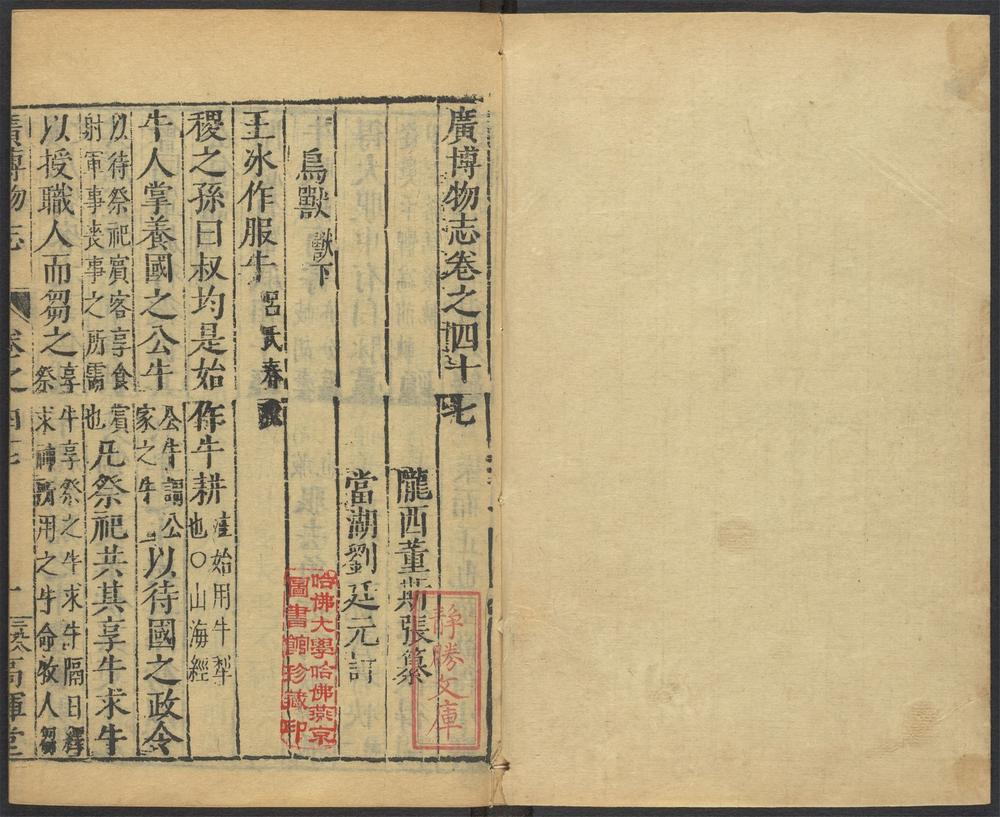 廣博物志卷之四十七
隴西董斯張纂
當湖劉廷元訂
鳥獸 獸下
王冰作服牛 呂氏春秋
稷之孫曰叔均是始作牛耕 注始用牛犁也○山海經
牛人掌養國之公牛 公牛謂公家之牛 以待國之政令
以待祭祀賓客享食射軍事喪事之所需 賓也 凡祭祀共其享牛求牛
以授職人而芻之 享牛享祭之牛求牛隔日繹祭求神所用之牛命牧人芻
廣博物志 卷之四十七 高暉堂
靜勝文庫
哈佛大學哈佛燕京圖書館珍藏印